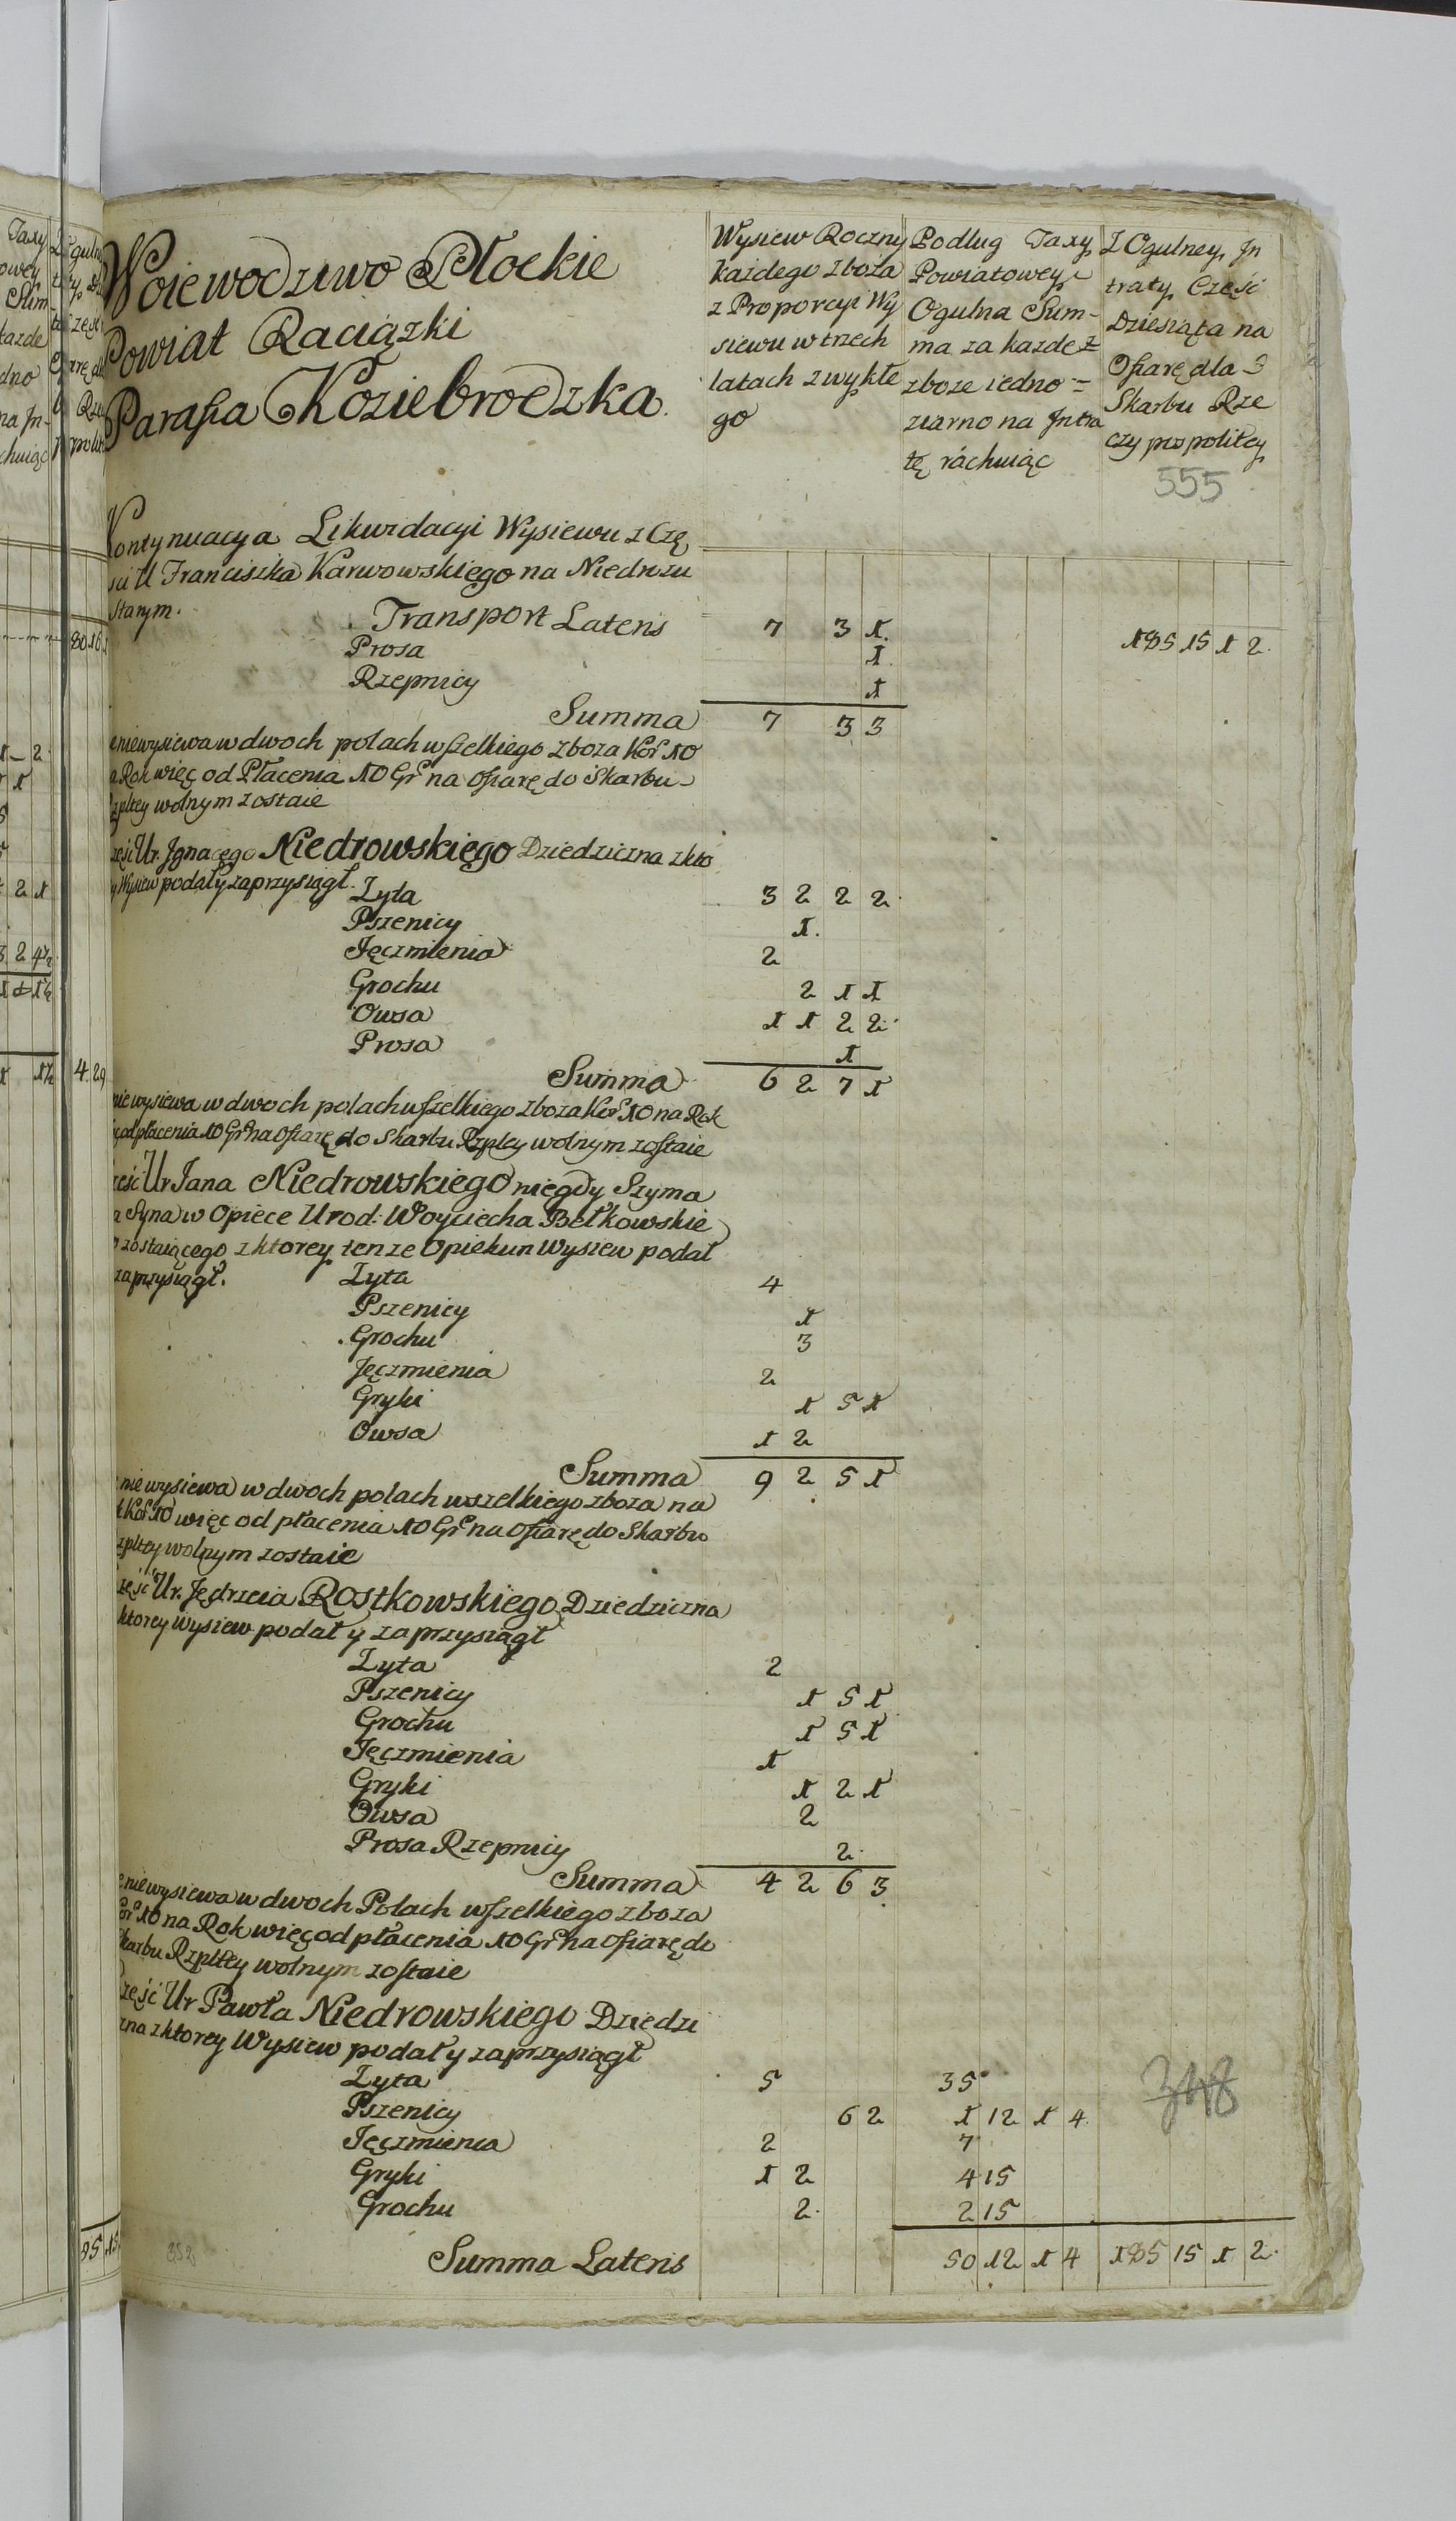 Woiewodztwo Płockie
Powiat Raciązki
Parafia Koziebrodzka
Wysiew Roczny
Każdego zboża
z Proporcyi Wy
siewu w trzech
latach zwykłe
go
Podług Taxy
Powiatowey
Ogulna Sum-
ma za każde z
zboże iedno =
ziarno na Intra
tę ráchuiąc
Z Ogulney In
traty Część
Dziesiąta na
Ofiarę dla
Skarbu Rze
czy pospolitey
555
Kontynuacya Likwidacyi Wysiewu z Czę
ści U Franciszka Karwowskiego na Niedrzu
Starym.
Transport Lateris 7 3 1. 185 15 1 2.
Prosa 1.
Rzepnicy 1
Summa 7 3 3
niewysiewa w dwoch polach wszelkiego zboza Kor 10
Rok więc od Płacenia 10 Gr na Ofiarę do Skarbu
wolnym zostaie
Ur. Ignacego Niedrowskiego Dziedziczna z kto
Wysiew podał y zaprzysiągł.
Zyta 3 2 2 2.
Pszenicy 1.
Jęczmienia 2
Grochu 2 1 1
Owsa 1 1 2 2.
Prosa 1
Summa 6 2 7 1
nie wysiewa w dwoch polach wszelkiego zboza Kor 10 na Rok
od płacenia 10 Gr na Ofiarę do Skarbu Rzpltey wolnym zostaie
Ur Jana Niedrowskiego niegdy Szyma
Syna w Opiece Urod: Woyciecha Bełkowskie
zostaiącego z ktorey tenze Opiekun Wysiew podał
zaprzysiągł.
Zyta 4
Pszenicy 1
Grochu 3
Jęczmienia 2
Gryki 1 5 1
Owsa 1 2
Summa 9 2 5 1
nie wysiewa w dwoch polach wszelkiego zboza na
Kor 10 więc od płacenia 10 Gr na Ofiarę do Skarbu
wolnym zostaie
Ur. Jędrzeia Rostkowskiego Dziedziczna
ktorey Wysiew podał y zaprzysiągł
Zyta 2
Pszenicy 1 5 1
Grochu 1 5 1
Jęczmienia 1
Gryki 1 2 1
Owsa 2
Prosa Rzepnicy 2.
Summa 4 2 6 3
niewysiewa w dwoch Polach wszelkiego zboza
Kor 10 na Rok więc od płacenia 10 Gr na Ofiarę do
Skarbu Rzpltey wolnym zostaie
Część Ur Pawła Niedrowskiego Dziedzi
zna z ktorey Wysiew podał y zaprzysiągł
Zyta 5 35
Pszenicy 6 2 1 12 1 4
Jęczmienia 2 7
Gryki 1 2 4 15
Grochu 2. 2 15
Summa Lateris 50 12 1 4 185 15 1 2.